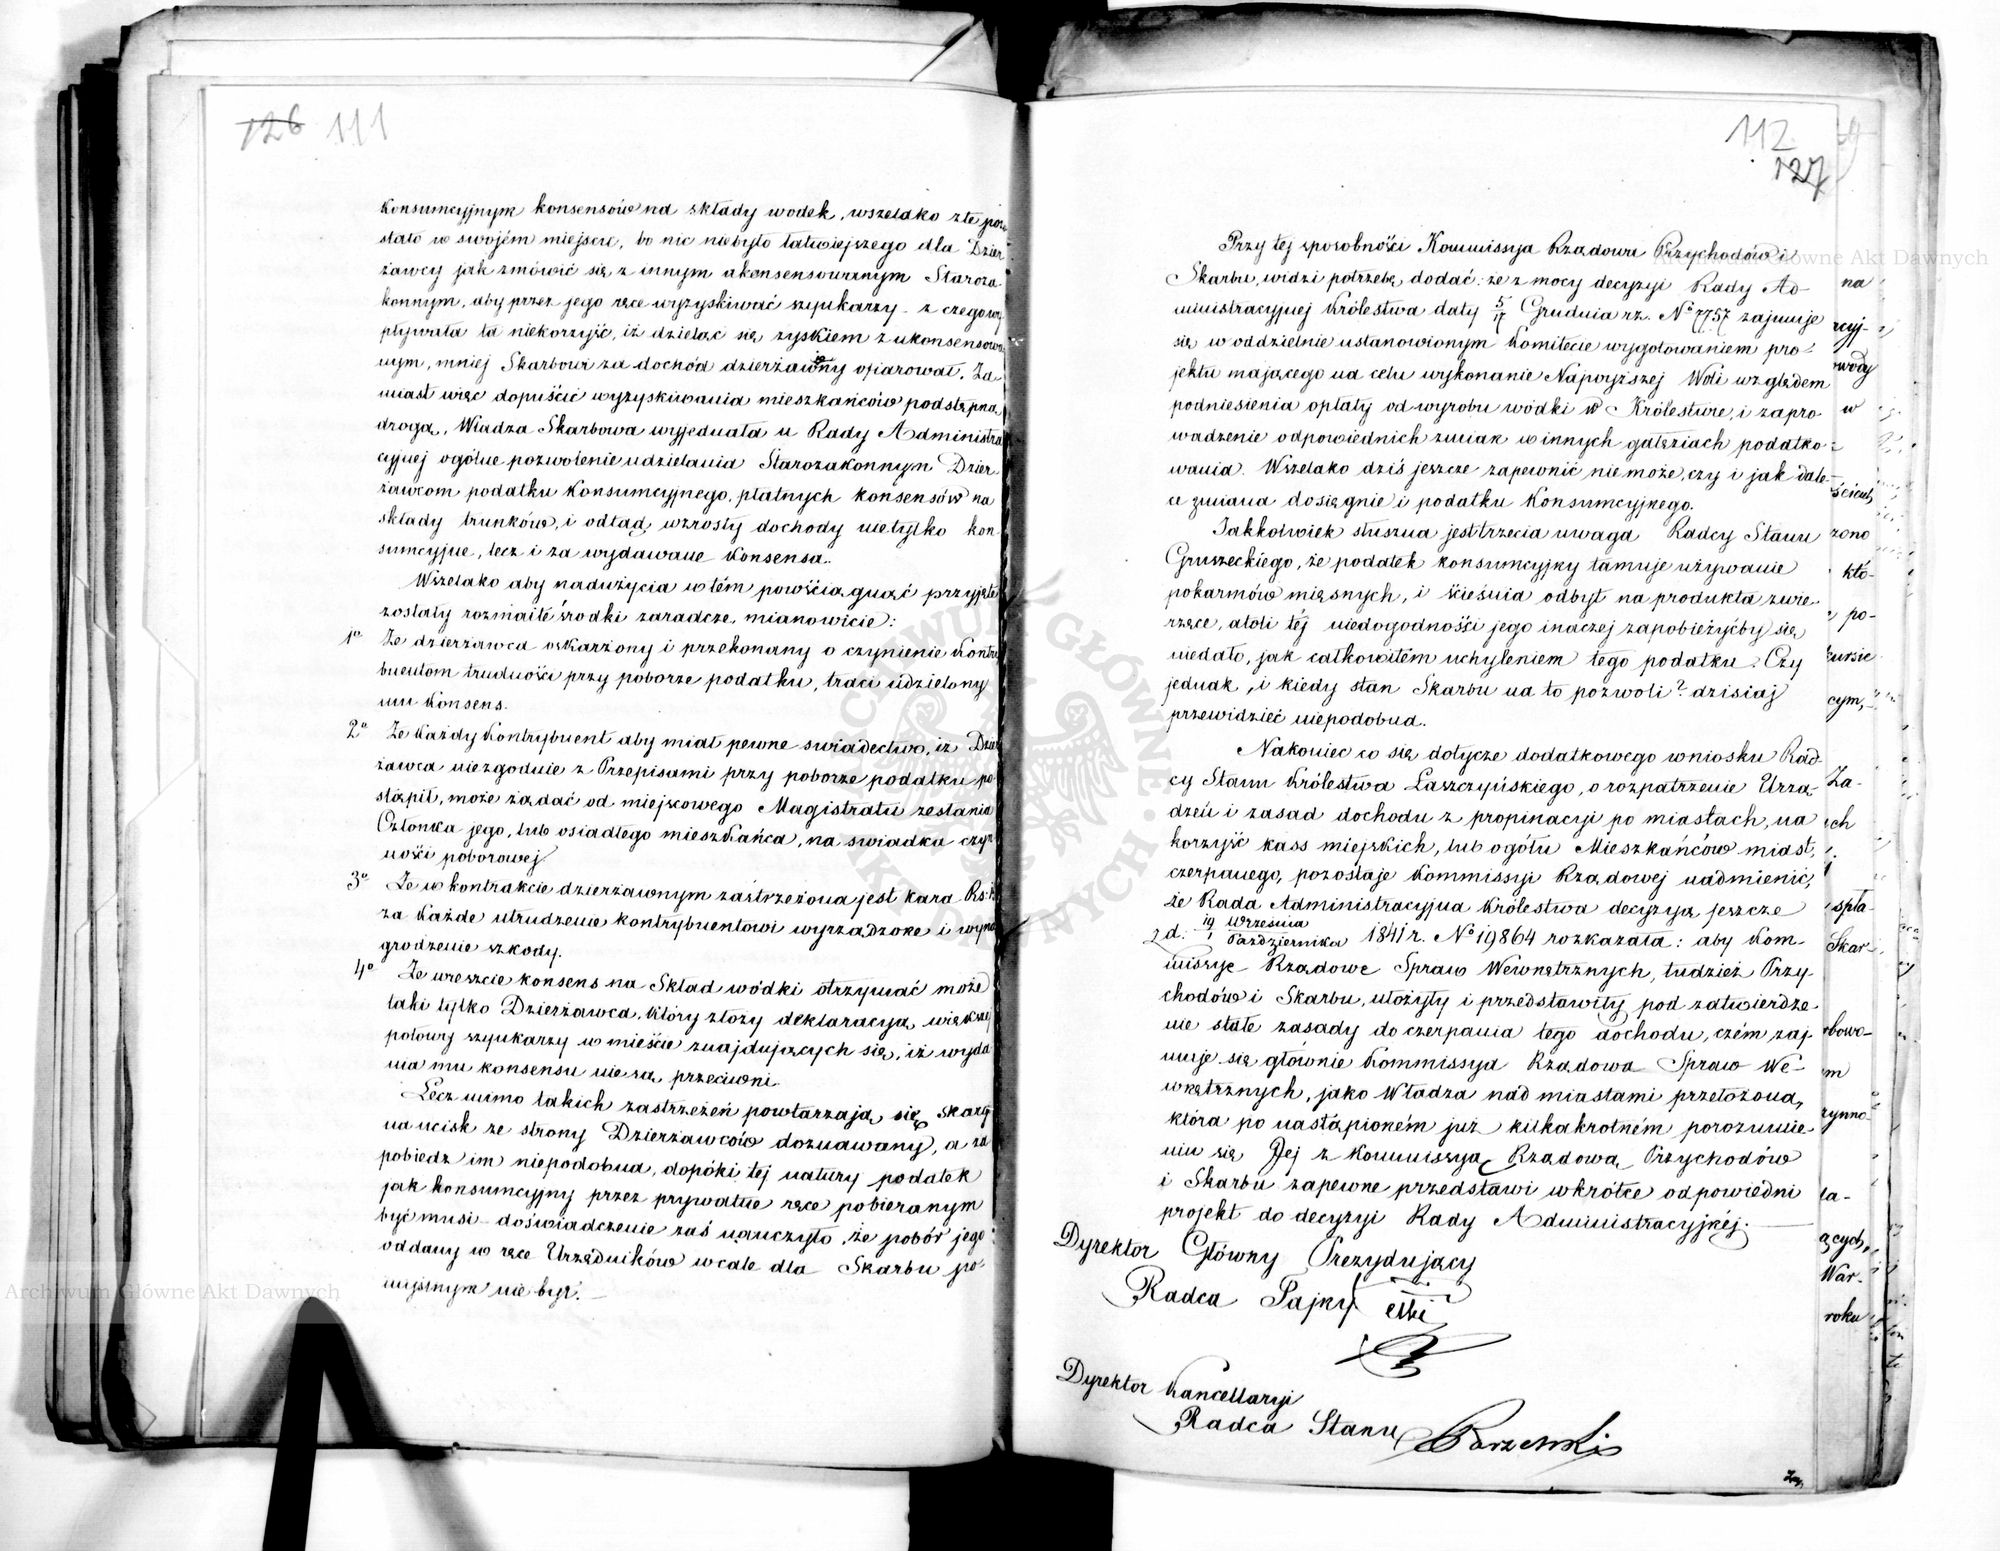 126 111
Konsumcyjnym konsensów na składy wodek, wszelako złe pozo
stało w swojém miejscu, bo nic niebyło łatwiejszego dla Dzier
żawcy jak zmówić się z innym akonsensowanym Staroza
konnym, aby przez jego ręce wyzyskiwać szynkarzy – z czego wy
pływała ta niekorzyść, iż dzieląc się zyskiem z ukonsensowa
nym, mniej Skarbowi za dochód dzierżawny ofiarował. Za
miast więc dopuścić wyzyskiwania mieszkańców podstępną
drogą, Władza Skarbowa wyjednała u Rady Administra
cyjnej ogólne pozwolenie udzielania Starozakonnym Dzier
żawcom podatku Konsumcyjnego, płatnych konsensów na
składy trunków, i odtąd wzrosły dochody nietylko kon
sumcyjne, lecz i za wydawane Konsensa.
Wszelako aby nadużycia w tém powściągnąć przyjęte
zostały rozmaite środki zaradcze, mianowicie:
1o Że dzierżawca oskarżony i przekonany o czynienie Kontry
buentom trudności przy poborze podatku, traci udzielony
mu Konsens.
2o Że Każdy Kontrybuent aby miał pewne swiadectwo, iż Dzier
żawca niezgodnie z Przepisami przy poborze podatku po
stąpił, może żądać od miejscowego Magistratu zesłania
Członka jego, lub osiadłego mieszkańca, na swiadka czyn
ności poborowej.
3o Że w kontrakcie dzierżawnym zastrzeżona jest kara Rs:
za Każde utrudzenie kontrybuentowi wyrządzone i wyna
grodzenie szkody.
4o Że wreszcie konsens na Skład wódki otrzymać może
taki tylko Dzierżawca, który złoży deklaracyą, większej
połowy szynkarzy w mieście znajdujących się, iż wyda
nia mu konsensu nie są przeciwni.
Lecz mimo takich zastrzeżeń powtarzają się skargi
na ucisk ze strony Dzierżawców doznawany, a za
pobiedz im niepodobna, dopóki tej natury podatek
jak konsumcyjny przez prywatne ręce pobieranym
być musi – doświadczenie zaś nauczyło, że pobór jego
oddany w ręce Urzędników wcale dla Skarbu po
myślnym nie był. –
112
127
Przy tej sposobności Kommissya Rządowa Przychodów i
Skarbu, widzi potrzebę dodać: że z mocy decyzyi Rady Ad–
ministracyjnej Królestwa daty 5/17 Grudnia rz. No 7757 zajmuje
się w oddzielnie ustanowionym Komitecie wygotowaniem pro–
jektu mającego na celu wykonanie Najwyższej Woli względem
podniesienia opłaty od wyrobu wódki w Królestwie, i zapro
wadzenie odpowiednich zmian w innych gałęziach podatko–
wania. Wszelako dziś jeszcze zapewnić nie może, czy i jak dale–
ce zmiana dosięgnie i podatku Konsumcyjnego.
Jakkolwiek słuszna jest trzecia uwaga Radcy Stanu
Gruszeckiego, że podatek konsumcyjny tamuje używanie
pokarmów mięsnych, i ścieśnia odbyt na produkta zwie–
rzęce, atoli téj niedogodności jego inaczej zapobieżyćby się
niedało, jak całkowitém uchyleniem tego podatku. Czy
jednak, i kiedy stan Skarbu na to pozwoli? dzisiaj
przewidzieć niepodobna.
Nakoniec co się dotycze dodatkowego wniosku Rad–
cy Stanu Królestwa Łaszczyńskiego, o rozpatrzenie Urzą–
dzeń i zasad dochodu z propinacyi po miastach, na
korzyść kass miejskich, lub ogółu Mieszkańców miast,
czerpanego, pozostaje Kommissyi Rządowej nadmienić,
że Rada Administracyjna Królestwa decyzyą jeszcze
z d. 19 Września / 1 Października 1841 r. No 19864 rozkazała: aby Kom–
missye Rządowe Spraw Wewnętrznych, tudzież Przy–
chodów i Skarbu, ułożyły i przedstawiły pod zatwierdze–
nie stałe zasady do czerpania tego dochodu, czém zaj–
muje się głównie Kommissya Rządowa Spraw We–
wnętrznych, jako Władza nad miastami przełożona,
która po nastąpioném już kilkakrotném porozumie–
niu się Jej z Kommissyą Rządową Przychodów
i Skarbu zapewne przedstawi wkrótce odpowiedni
projekt do decyzyi Rady Administracyjnéj.
Dyrektor Główny Prezydujący
Radca Tajny
Dyrektor Kancellaryi
Radca Stanu
na
w
zono
któ–
po–
cym,
Za–
ych
spła–
Skar–
bowo–
em
zynno–
ła–
ących,
War–
roku
Archiwum Główne Akt Dawnych
Archiwum Główne Akt Dawnych
ARCHIWUM GŁÓWNE AKT DAWNYCH